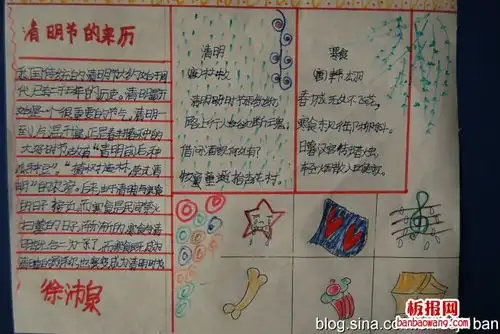 清明节的来历
我国传统的清明节大约始于周
代,已有二千五百年的历史。清明最开
始是一个很重要的节气,清明一
到,气温升高,正是春耕春种的
大好时节,故有"清明前后,种
瓜种豆"。"植树造林,莫过清
明"的农谚。后来,由于清明与寒食
的日子接近,而寒食是民间禁火
扫墓的日子,渐渐的,寒食与清
明就合二为一了,而寒食既成为
清明的别称,也变成为清明时节
徐沛泉
清明
唐 杜牧
清明时节雨纷纷,
路上行人欲断魂。
借问酒家何处有?
牧童遥指杏花村。
寒食
唐 韩翃
春城无处不飞花,
寒食东风御柳斜。
日暮汉宫传蜡烛,
轻烟散入五侯家。
板报网
banbaowang.com
blog.sina.com.cn
ban